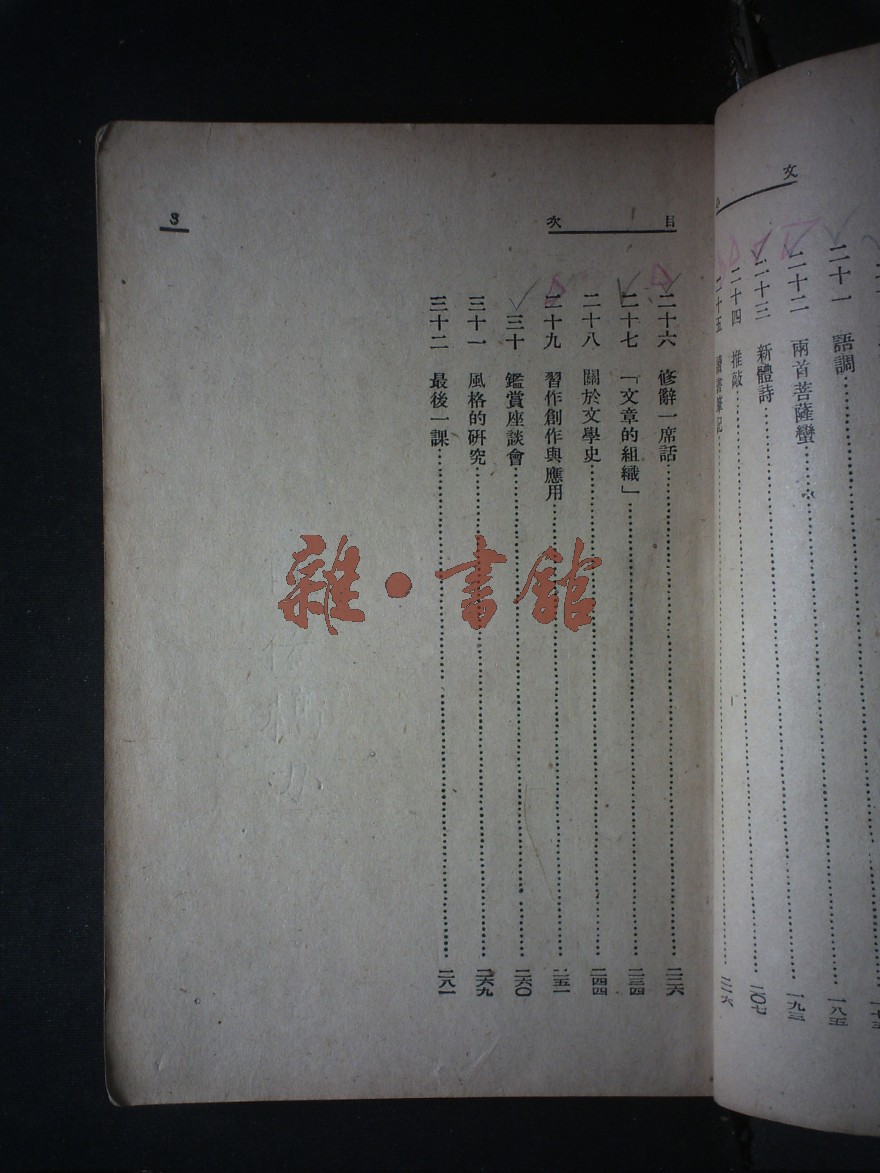 文
二十一　語調⋯⋯一八五
二十二　兩首菩薩蠻⋯⋯一九三
二十三　新體詩⋯⋯二〇七
二十四　推敲⋯⋯二一六
二十五　讀書筆記
目次
3
二十六　修辭一席話⋯⋯二二六
二十七　「文章的組織」⋯⋯二三四
二十八　關於文學史⋯⋯二四四
二十九　習作創作與應用⋯⋯二五一
三十　鑑賞座談會⋯⋯二六〇
三十一　風格的研究⋯⋯二六九
三十二　最後一課⋯⋯二八一
雜·書館